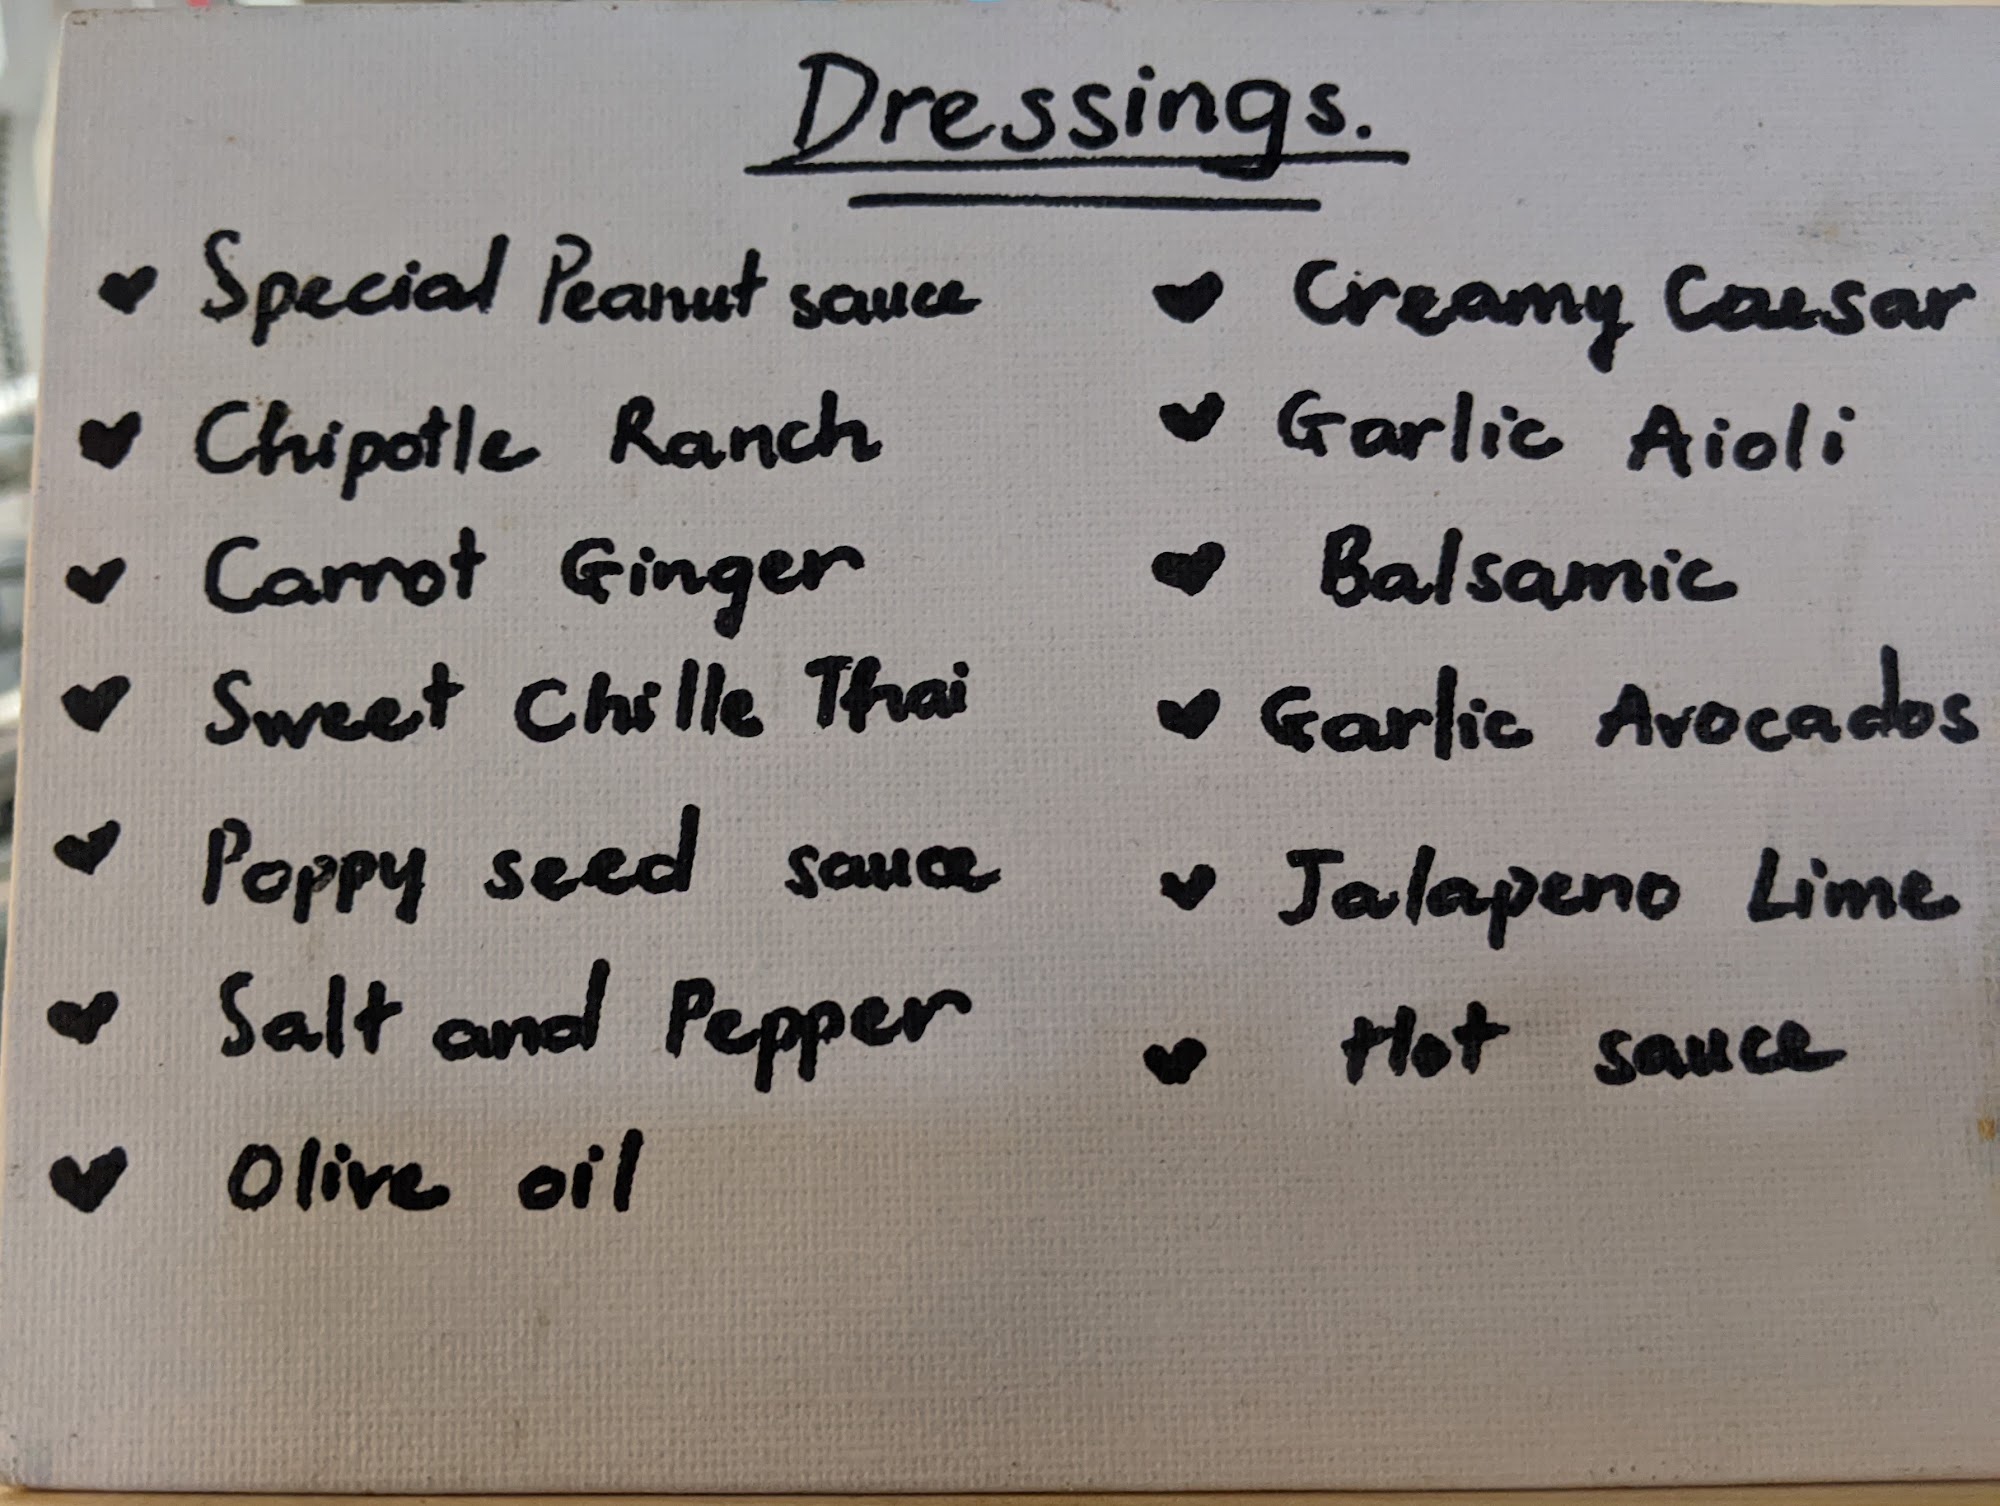 Dressings.
Special Peanut sauce
Chipotle Ranch
Carrot Ginger
Sweet Chille Thai
Poppy seed sauce
Salt and Pepper
Olive oil
Creamy Caesar
Garlic Aioli
Balsamic
Garlic Avocados
Jalapeno Lime
Hot sauce